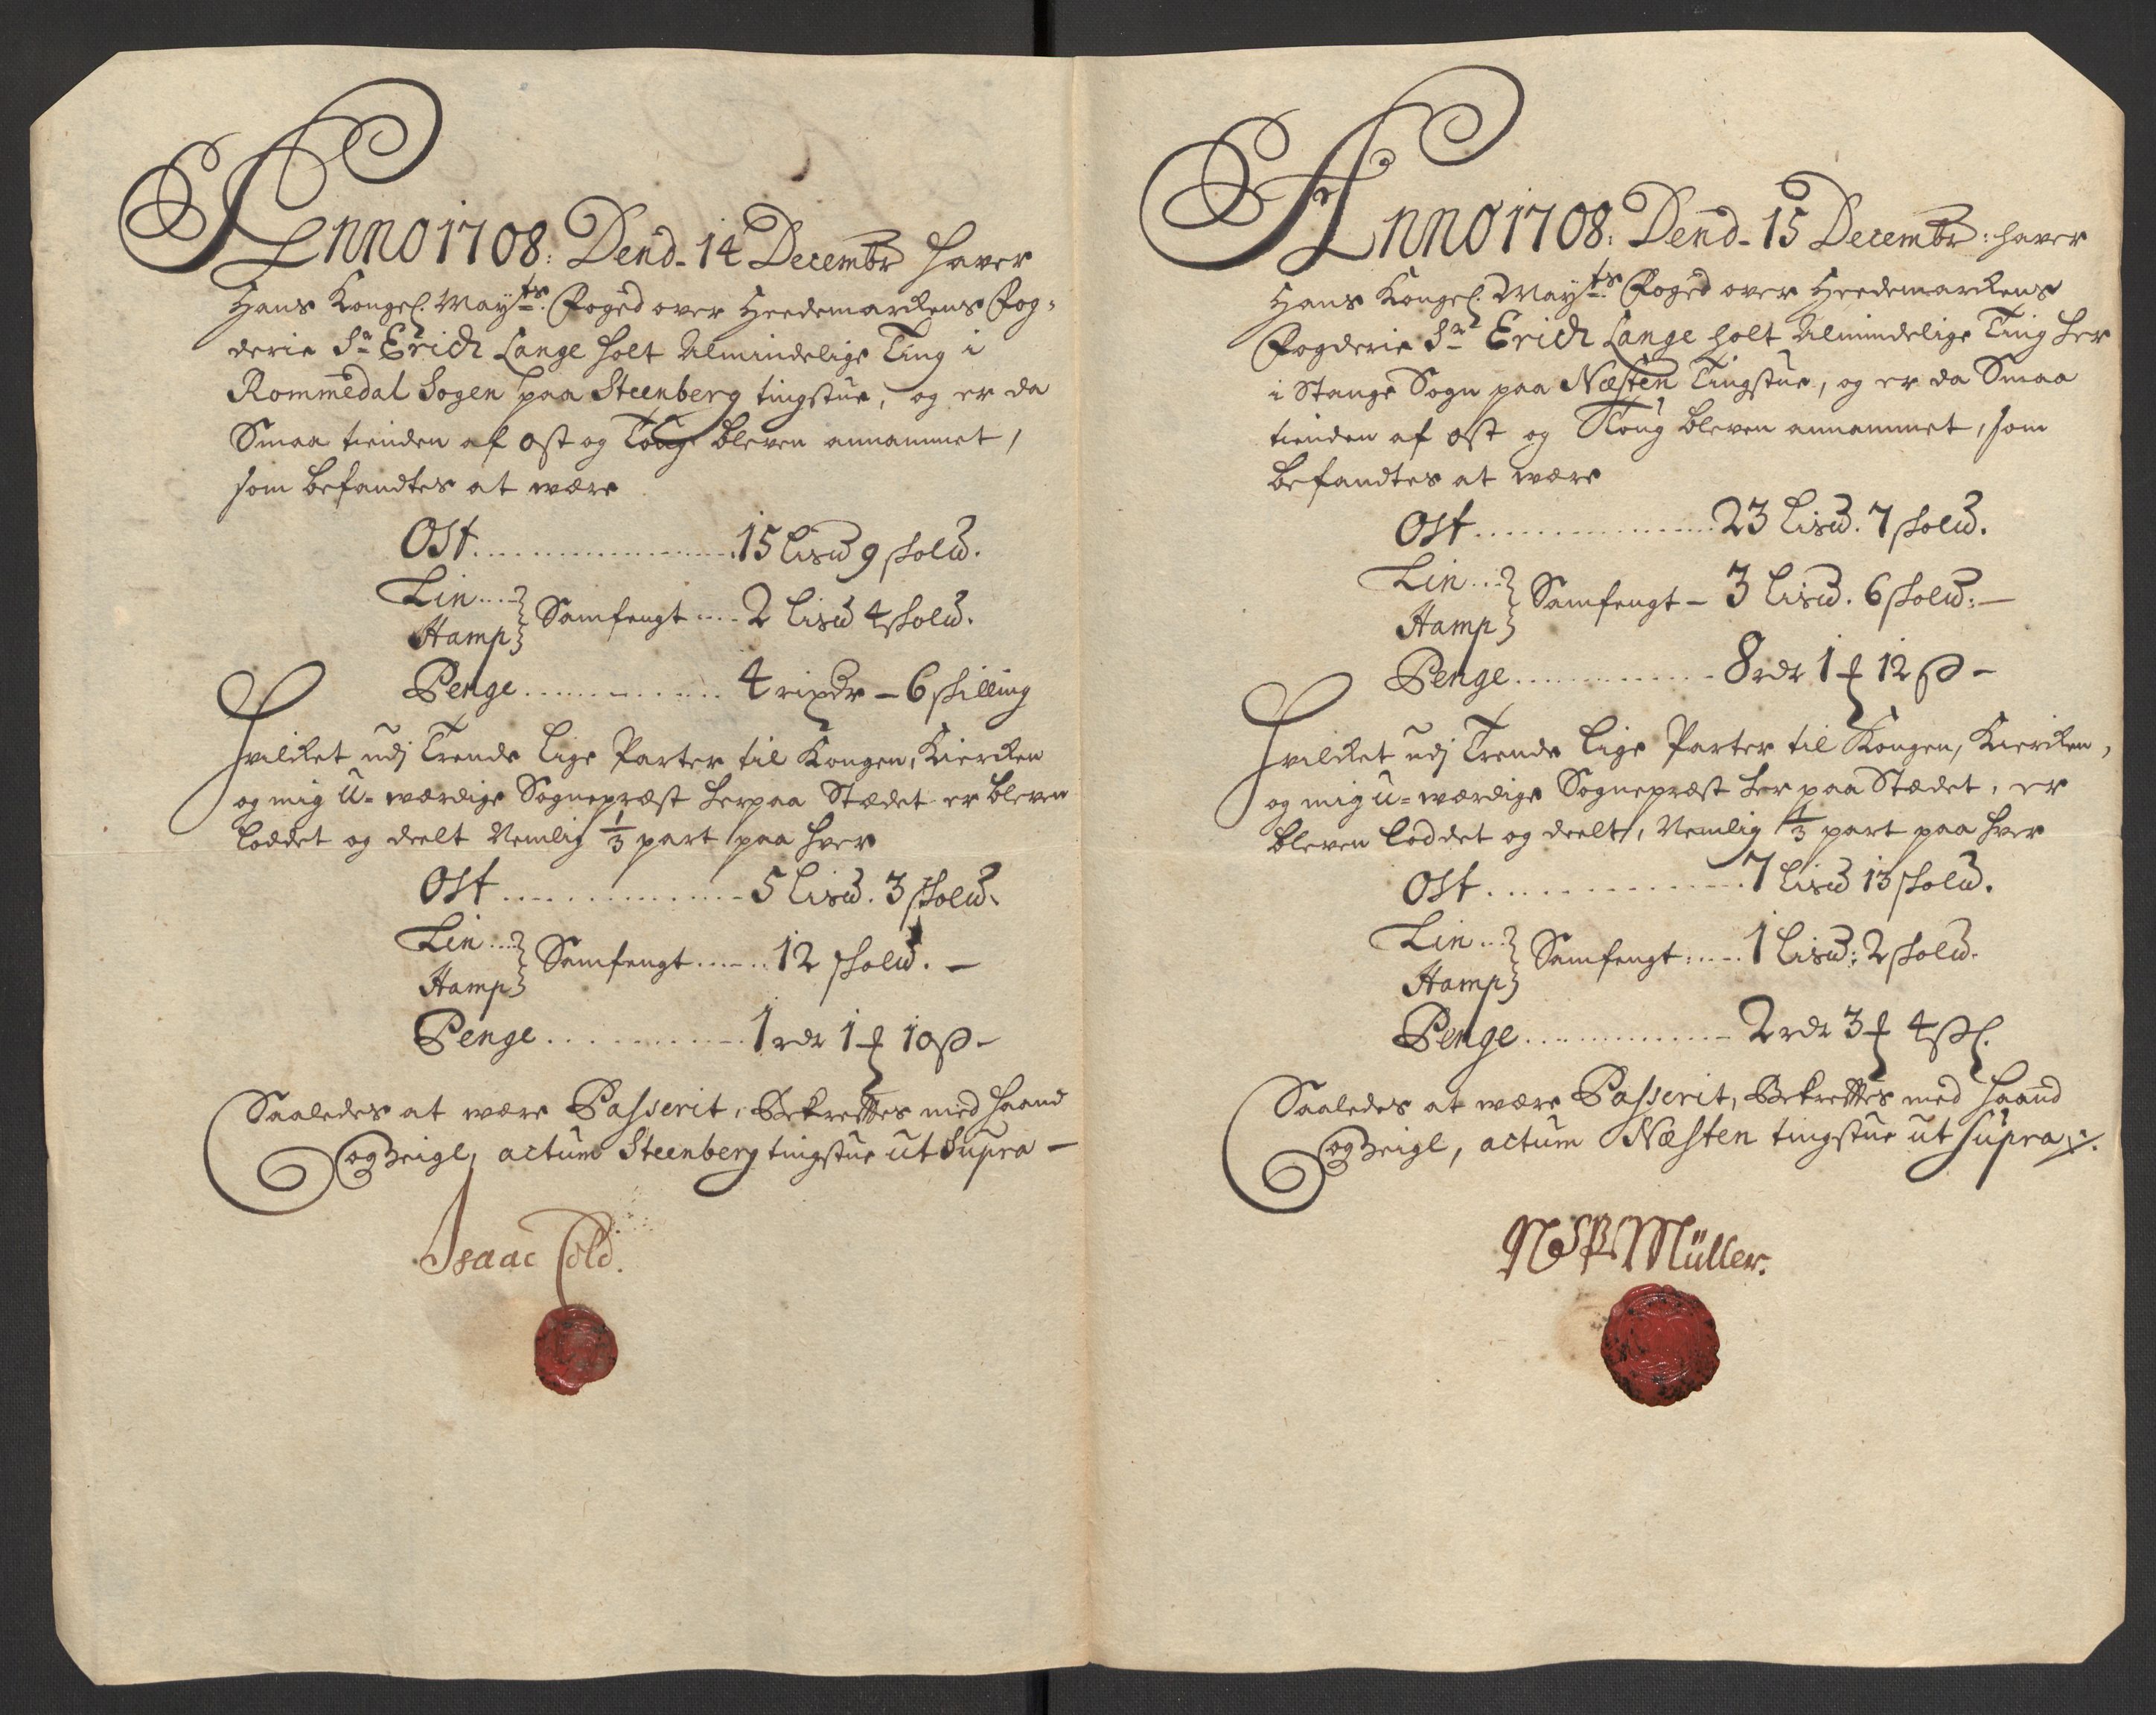 Anno 1708: Dend. 14 Decembr haver
Hans Kongel. Mayts: Foged over Heedemarckens Fog-
derie Sr Erich Lange holt Almindelige Ting i
Rommedal Sogen paa Steenberg tingstue, og er da
Smaa tienden af Ost og Toug bleven annammet,
som befandtes at wære
Ost ........ 15 Lisd 9 skold.
Lin ...
Hamp } Samfengt .... 2 Lisd 4 skold.
Penge ........ 4 rixdr – 6 skilling
Hvilcket udj Trende Lige Parter til Kongen, Kiercken
og mig U-wærdige Sognepræst herpaa Stædet er bleven
loddet og deelt Nemlig 1/3 part paa hver
Ost ........ 5 Lisd. 3 skold.
Lin ...
Hamp } Samfengt ...... 12 skold. –
Penge ........ 1 rdr 1 ℔ 10 β –
Saaledes at wære Passerit, Bekreftes med Haand
og Zeigl, actum Steenberg tingstue ut Supra –
Isaac Cold.
Anno 1708: Dend. 15 Decembr: haver
Hans Kongel. Mayts: Foged over Heedemarckens
Fogderie Sr Erich Lange holt Almindelige Ting her
i Stange Sogn paa Næsten Tingstue, og er da Smaa
tienden af Ost og Toug bleven annammet, som
befandtes at wære
Ost ........ 23 Lisd. 7 skold.
Lin ...
Hamp } Samfengt – 3 Lisd. 6 skold: –
Penge ........ 8 rdr 1 ℔ 12 β –
Hvilcket udj Trende Lige Parter til Kongen, Kiercken,
og mig U-wærdige Sognepræst her paa Stædet, er
bleven loddet og deelt, Nemlig 1/3 part paa hver
Ost ........ 7 Lisd 13 skold.
Lin ...
Hamp } Samfengt: .... 1 Lisd: 2 skold.
Penge ........ 2 rdr 3 ℔ 4 βl.
Saaledes at wære Passerit, Bekreftes med Haand
og Zeigl, actum Næsten tingstue ut supra
Müller.